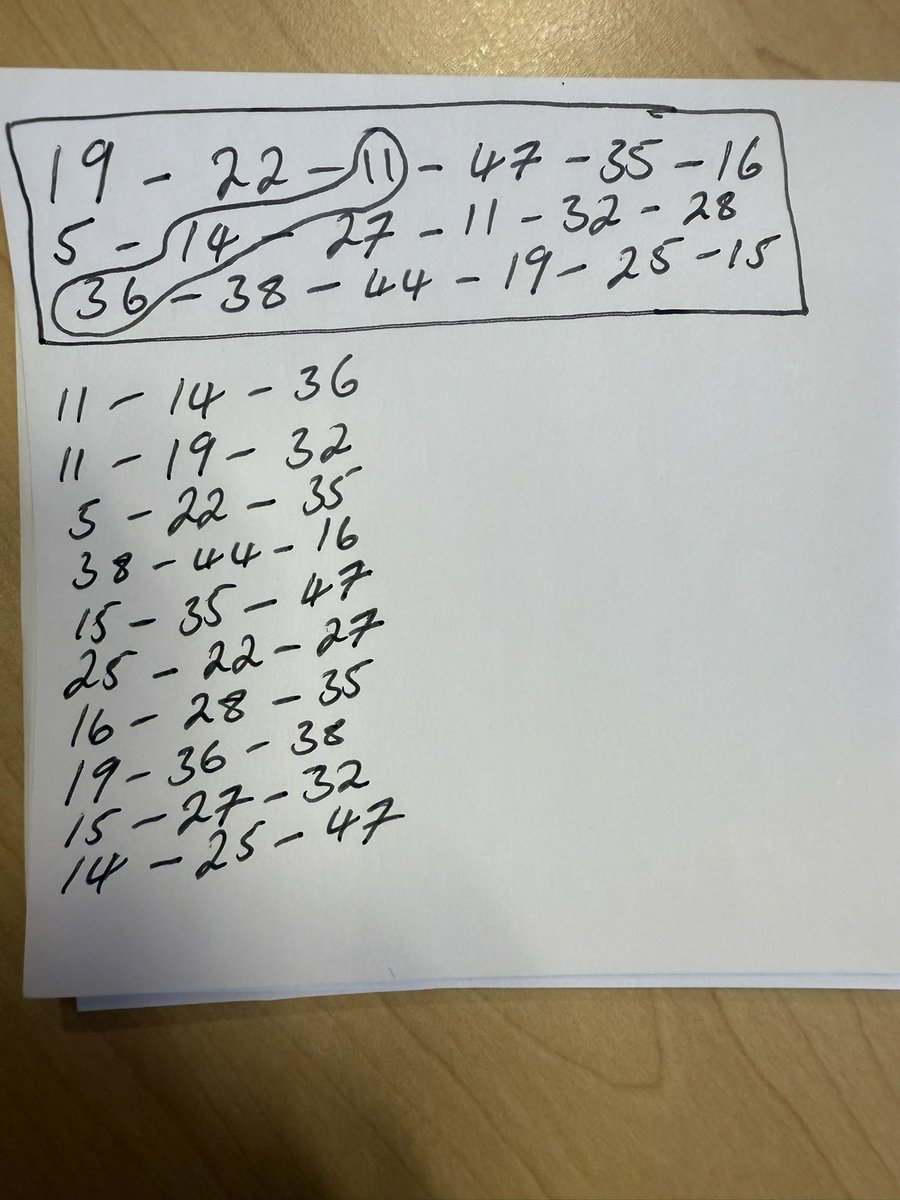 19 - 22 - 11 - 47 - 35 - 16
5 - 14 - 27 - 11 - 32 - 28
36 - 38 - 44 - 19 - 25 - 15
11 - 14 - 36
11 - 19 - 32
5 - 22 - 35
38 - 44 - 16
15 - 35 - 47
25 - 22 - 27
16 - 28 - 35
19 - 36 - 38
15 - 27 - 32
14 - 25 - 47